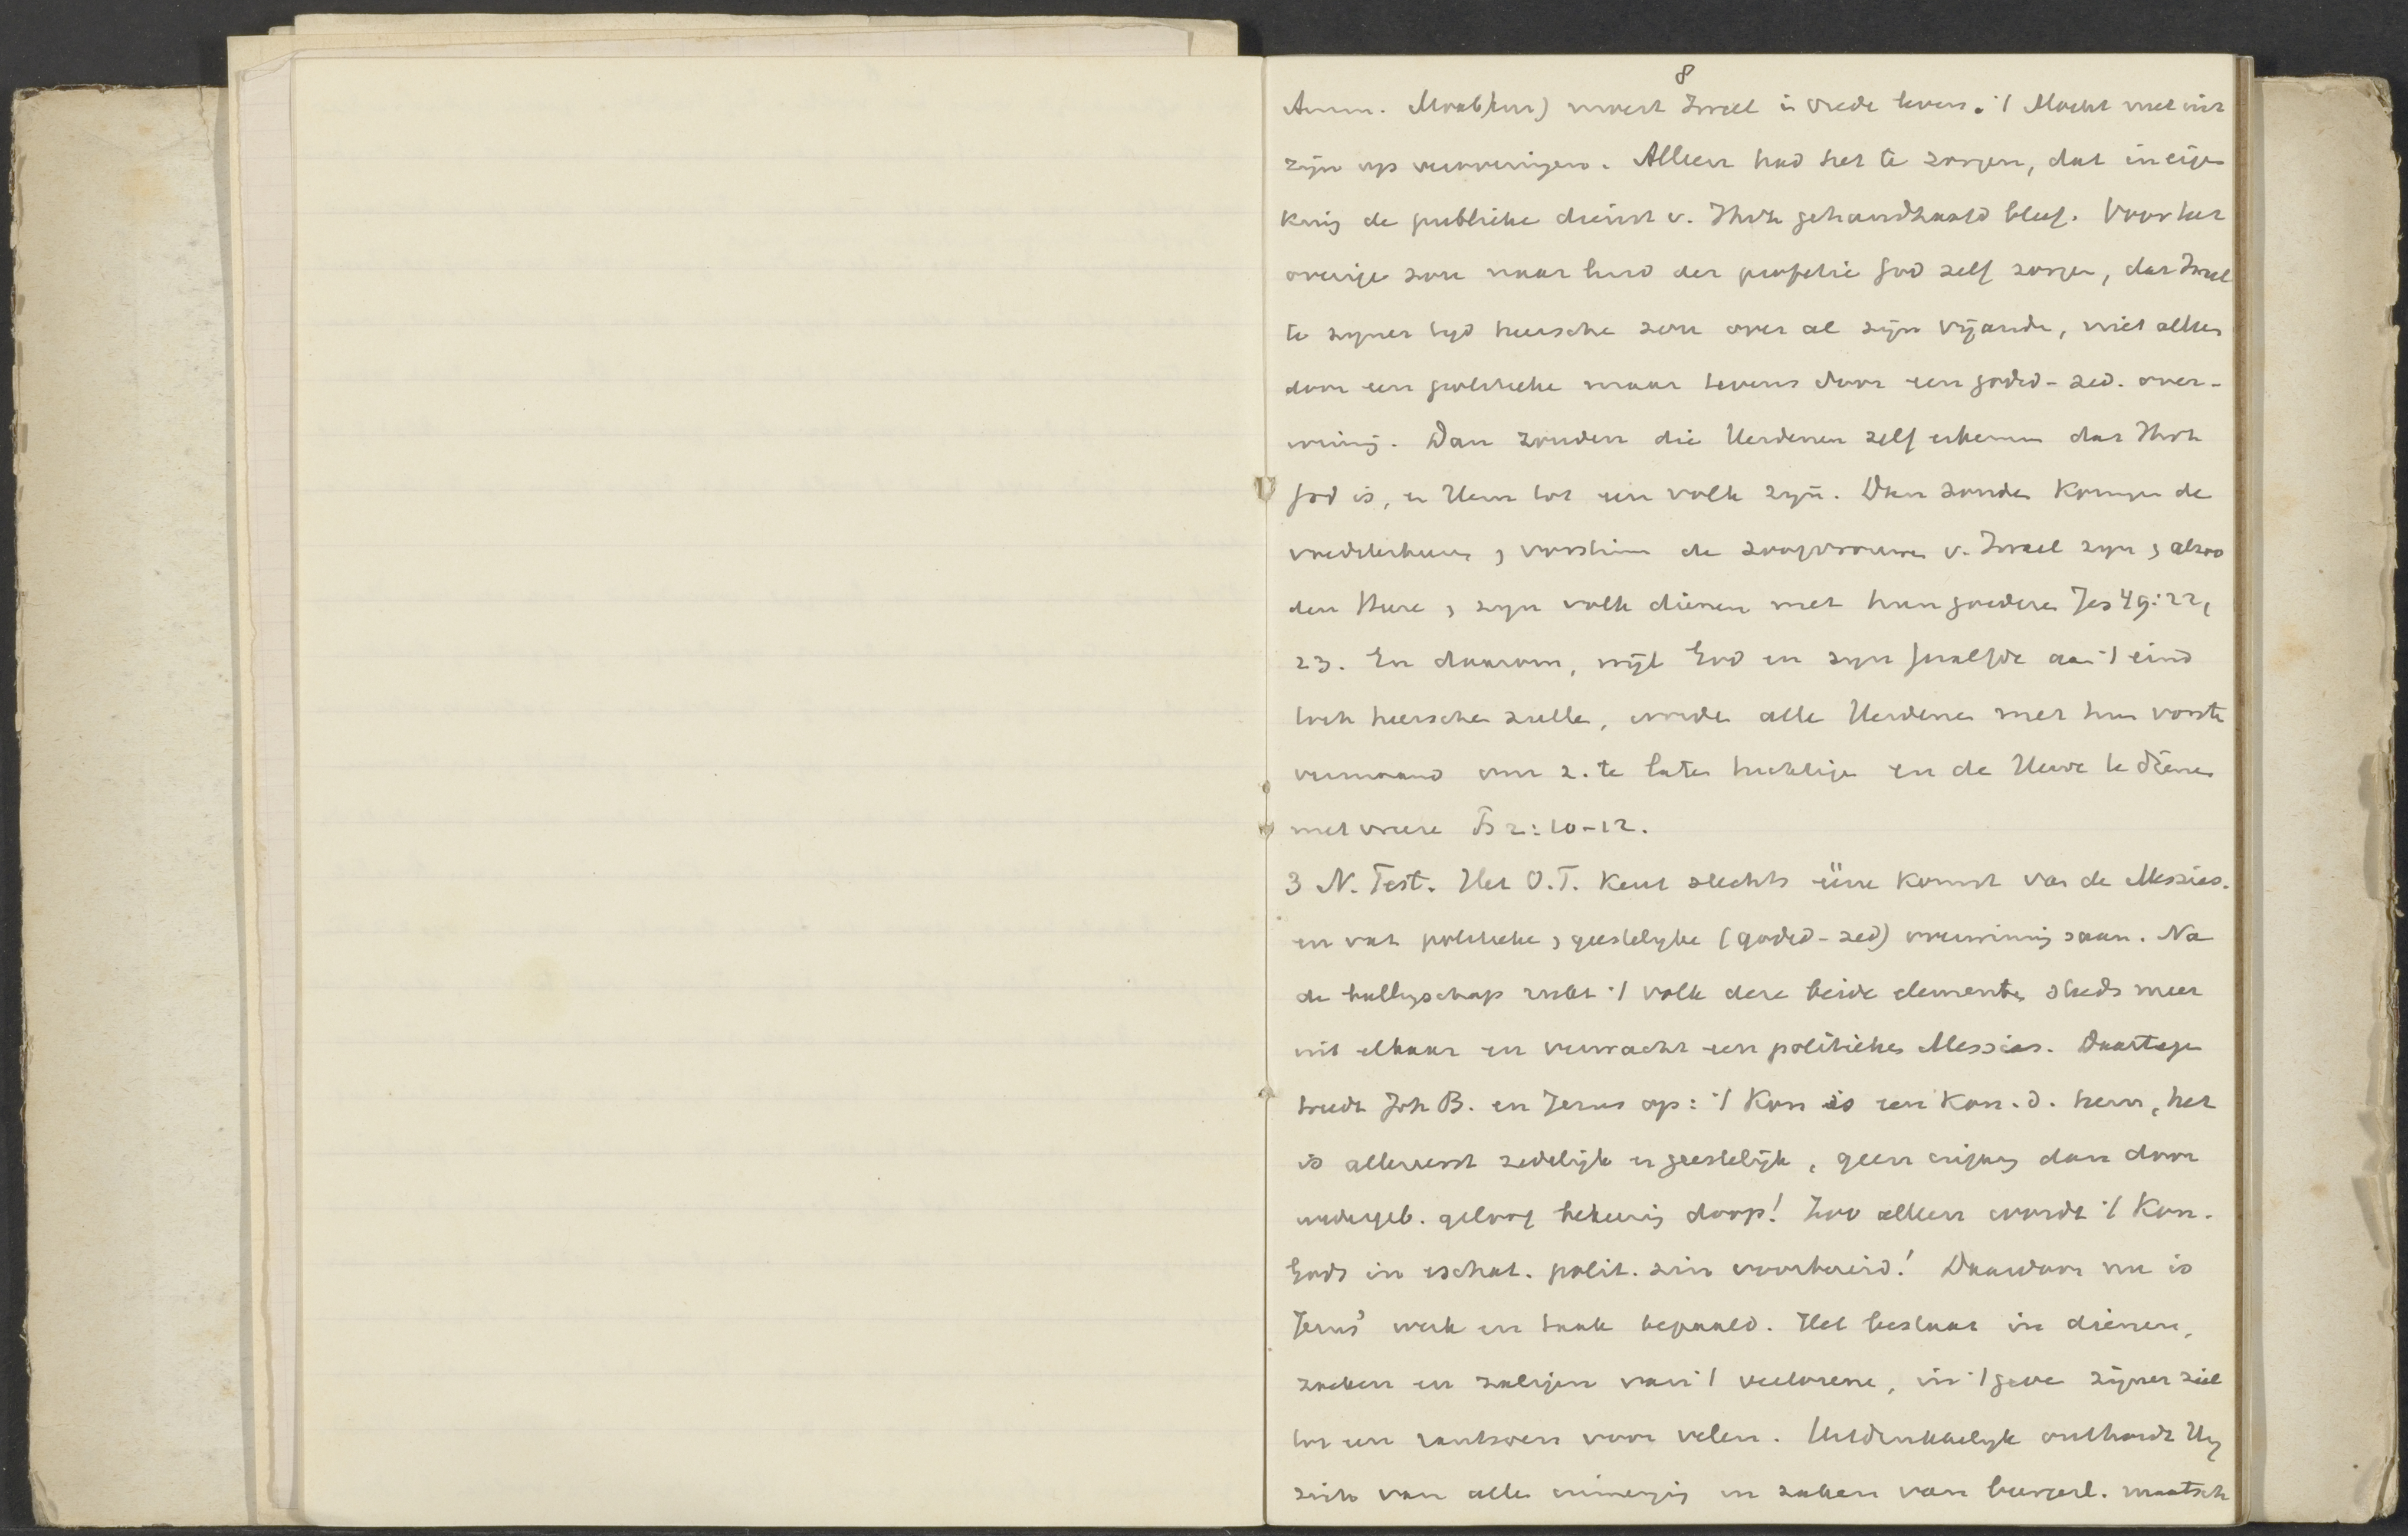 8
Amm. Moab, enz) moest Israel in vrede leven. 't Mocht niet uit
zijn op veroveringen. Alleen had het te zorgen, dat in eigen
kring de publieke dienst v. Jhvh gehandhaafd bleef. Voor het
overige zou naar luid der profetie God zelf zorgen, dat Israel
te zyner tyd heersche zou over al zijn vijande, niet alleen
door een politieke maar tevens door een godsd-zed. over-
winning. Dan zouden die Heidenen zelf erkennen dat Jhvh
God is, en Hem tot een volk zijn. Dan zouden Koningen de
voedsterheeren, vorstinnen de zoogvrouwen v. Israel zyn, alzoo
den Heere, zyn volk dienen met hun goederen Jes 49:22,
23. En daarom, wijl God en zyn gezalfde aan 't eind
toch heerschen zullen, worden alle Heidenen met hun vorsten
vermaand om z. te laten tuchtigen en de Heere te dienen
met vreeze Ps 2:10-12.
3 N. Test. Het O.T. kent slechts ééne komst van de Messias.
en vat politieke, geestelyke (godsd-zed) overwinning saam. Na
de ballingschap rukt 't volk deze beide elementen steeds meer
uit elkaar en verwacht een politieken Messias. Daartegen
treedt Joh B. en Jezus op: 't Kon is een Kon. d. hem, het
is allereerst zedelijk en geestelijk, geen ingang dan door
wedergeb. geloof bekeering doop! Zoo alleen wordt 't Kon.
Gods in eschat. polit. zin voorbereid! Daardoor nu is
Jezus' werk en taak bepaald. Het bestaat in dienen,
zoeken en zaligen van 't verlorene, in 't geven zijner ziel
tot een rantsoen voor velen. Uitdrukkelyk onthoudt Hij
zich van alle inmenging in zaken van burgerl. maatsch